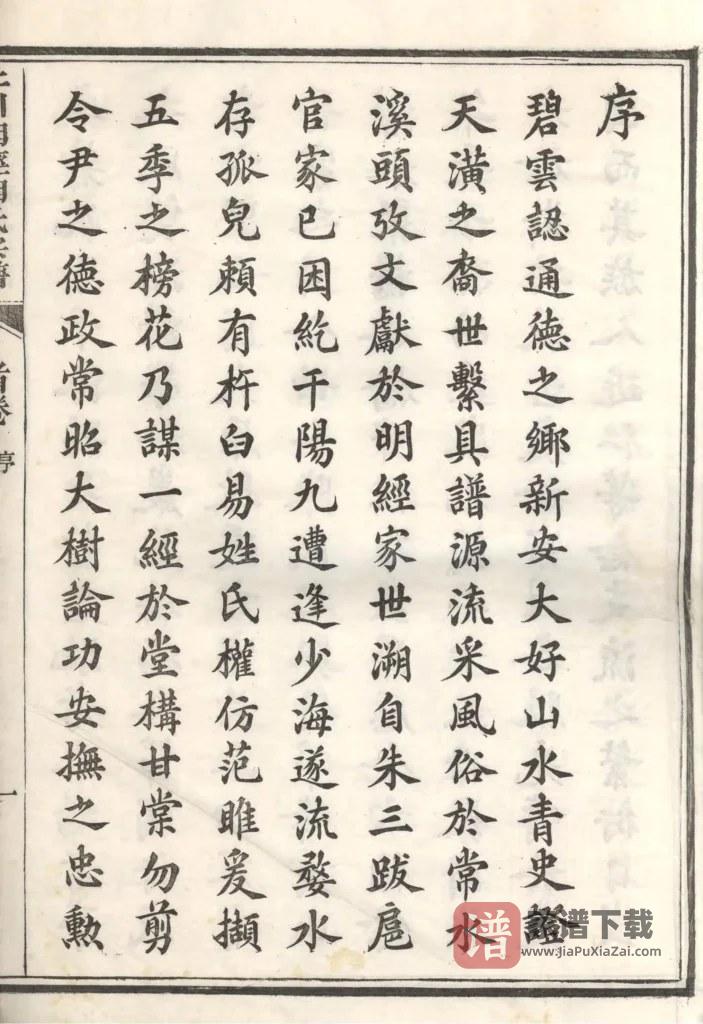 序
碧雲認通德之鄉新安大好山水青史證
天潢之裔世繫具譜源流采風俗於常水
溪頭攷文獻於明經家世溯自朱三跋扈
官家已困紇干陽九遭逢少海遂流婺水
存孤皃賴有杵臼易姓氏權仿范雎爰擷
五季之榜花乃謀一經於堂構甘棠勿剪
令尹之德政常昭大樹論功安撫之忠勲
首卷 序
一
谱 谱下载
www.JiaPuXiaZai.com